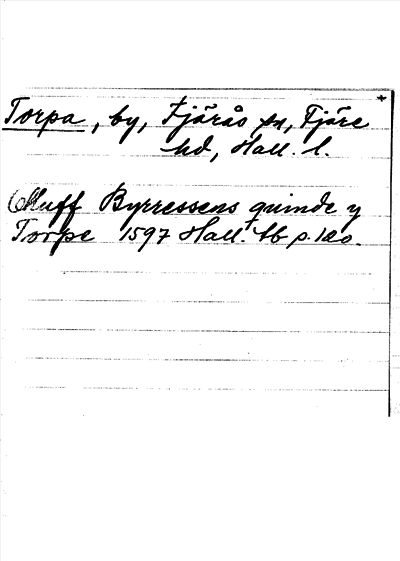 Torpa, by, Fjärås sn, Fjäre
hd, Hall. l.
Oluff Byrressens quinde y
Torpe 1597 Hall. tb p. 120.